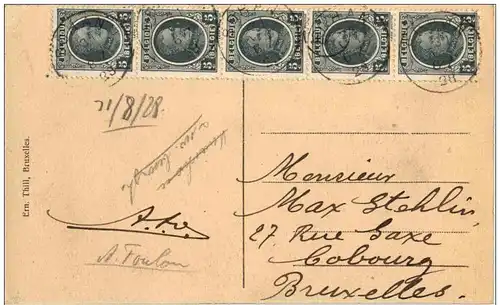 BELGIQUE BELGIË
BELGIQUE BELGIË
BELGIQUE BELGIË
BELGIQUE BELGIË
BELGIQUE BELGIË
21/8/28
Ern. Thill, Bruxelles.
A. Toulon
Monsieur
Max Stehlin
27 Rue Saxe
Cobourg
Bruxelles.